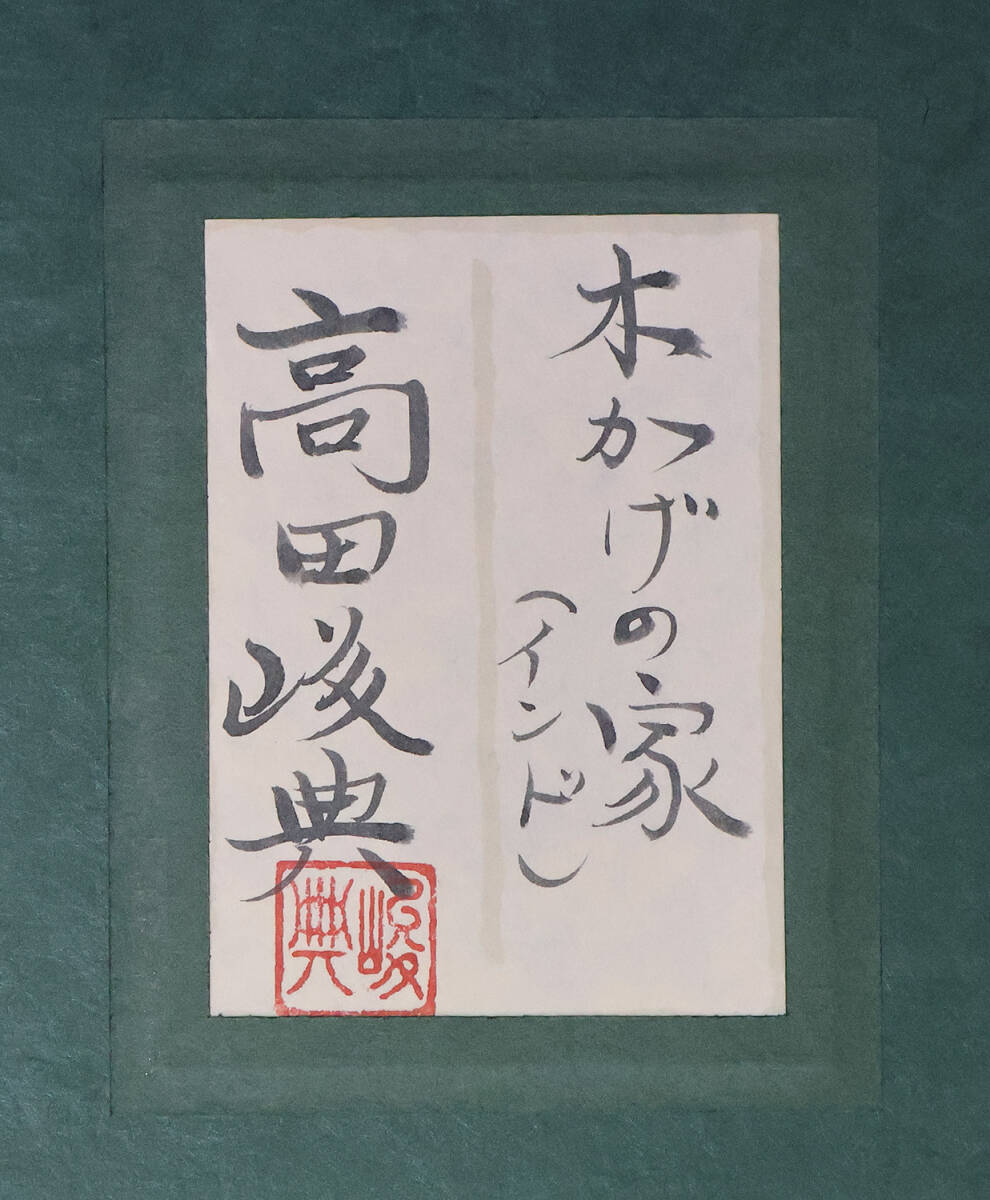 木かげの家
（インド）
高田峻典
峻典